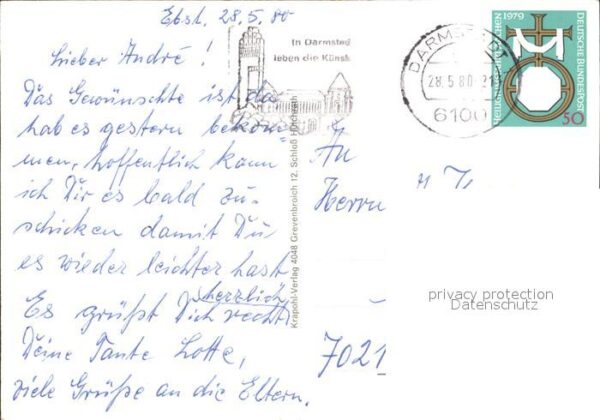 Ebst. 28.5.80
Lieber André!
Das Gewünschte ist da
hab es gestern bekom-
men, hoffentlich kann
ich Dir es bald zu-
schicken damit Du
es wieder leichter hast
Es grüßt Dich recht
herzlich
Deine Tante Lotte,
viele Grüße an die Eltern.
In Darmstad
leben die Künst
Krapohl-Verlag 4048 Grevenbroich 12, Schloß Hülchrath
DARMSTADT
28.5.80.21
6100
1979
DEUTSCHE BUNDESPOST
50
An
Herrn
7021
privacy protection
Datenschutz